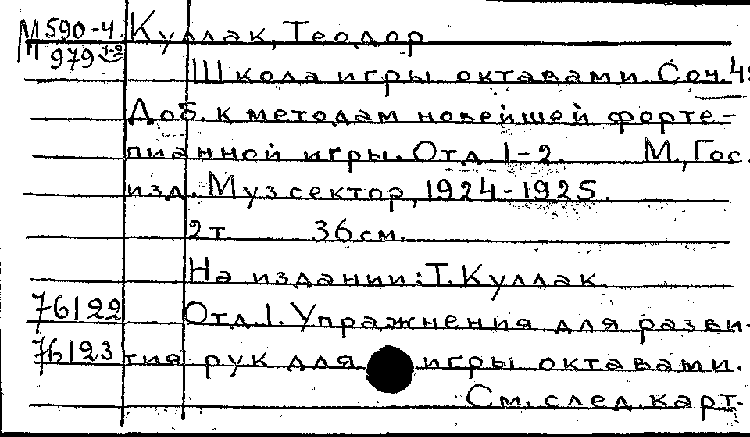 М 590-4. Куллак, Теодор
979 1-2
Школа игры октавами. Соч. 48
Доб. к методам новейшей форте-
пианной игры. Отд. 1-2. М., Гос.
изд. Муз сектор, 1924-1925.
2 т 36 см.
На издании: Т. Куллак
76122 Отд. 1. Упражнения для разви-
76123 тия рук для игры октавами.
См. след. карт.